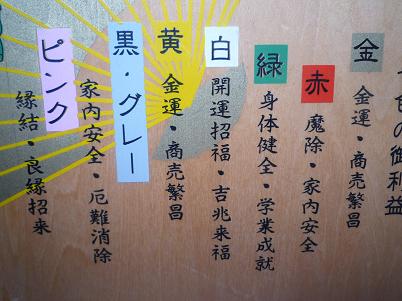 色の御利益
金
金運・商売繁昌
赤
魔除・家内安全
緑
身体健全・学業成就
白
開運招福・吉兆来福
黄
金運・商売繁昌
黒・グレー
家内安全・厄難消除
ピンク
縁結・良縁招来